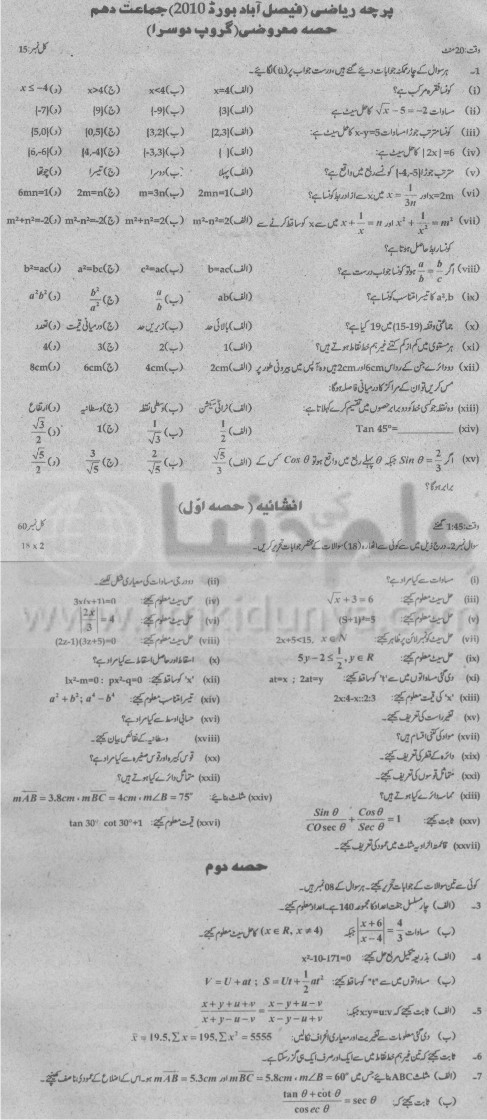 پرچہ ریاضی (فیصل آباد بورڈ 2010) جماعت دہم
حصہ معروضی (گروپ دوسرا)
وقت: 20 منٹ کل نمبر: 15
1- ہر سوال کے چار ممکنہ جوابات دیئے گئے ہیں، درست جواب پر (✓) لگائیے۔
(i) کونسا فقرہ مرکب ہے؟ (الف) x=4 (ب) x<4 (ج) x>4 (د) x ≤ -4
(ii) مساوات √x - 5 = -2 کا حل سیٹ ہے (الف) {3} (ب) {-9} (ج) {9} (د) {-7}
(iii) کونسا مترتب جوڑا مساوات x-y=5 کا حل ہے: (الف) {2,3} (ب) {3,2} (ج) {0,5} (د) {5,0}
(iv) |2x| =6 کا حل سیٹ ہے: (الف) { } (ب) {-3,3} (ج) {4,-4} (د) {6,-6}
(v) مترتب جوڑا {-4,-5} کونسے ربع میں واقع ہے؟ (الف) پہلا (ب) دوسرا (ج) تیسرا (د) چوتھا
(vi) x=2m اور x = 1/3n میں x سے آزاد ربط کونسا ہے؟ (الف) 2mn=1 (ب) m=3n (ج) 2m=n (د) 6mn=1
(vii) x + 1/x = n اور x² + 1/x² = m² میں سے x کو ساقط کرنے سے (الف) m²-n²=2 (ب) m²+n²=2 (ج) m²-n²=-2 (د) m²+n²=-2
کونسا ربط حاصل ہوتا ہے؟
(viii) اگر a/b = b/c ہو تو کونسا جواب درست ہے؟ (الف) b=ac (ب) c²=ac (ج) a²=bc (د) b²=ac
(ix) a²,b کا تیسرا تناسب کونسا ہے؟ (الف) ab (ب) a/b (ج) b²/a² (د) a²b²
(x) جماعتی وقفہ (15-19) میں 19 کیا ہے؟ (الف) بالائی حد (ب) زیریں حد (ج) درمیانی قیمت (د) تعدد
(xi) ہر مستوی میں کم از کم کتنے غیر ہم خط نقاط ہوتے ہیں؟ (الف) 1 (ب) 2 (ج) 3 (د) 4
(xii) دو دائرے جن کے رداس 6cm اور 2cm ہیں وہ آپس میں بیرونی طور پر (الف) 2cm (ب) 4cm (ج) 6cm (د) 8cm
مس کریں تو ان کے مراکز کا درمیانی فاصلہ ہوگا:
(xiii) وہ نقطہ جو کسی خط کو دو برابر حصوں میں تقسیم کرے کہلاتا ہے: (ب) وسطی نقطہ (ج) وسطانیہ (د) ارتفاع
(xiv) Tan 45°=__________ (الف) 1/2 (ب) 1/√3 (ج) 1 (د) √3/2
(xv) اگر Sin θ = 2/3 جبکہ θ پہلے ربع میں واقع ہو تو Cos θ کس کے (الف) √5/3 (ب) 2/√5 (ج) 3/√5 (د) √5/2
برابر ہوگا؟
انشائیہ (حصہ اوّل)
وقت: 1:45 گھنٹے کل نمبر 60
سوال نمبر 2- درج ذیل میں سے کوئی سے اٹھارہ (18) سوالات کے مختصر جوابات تحریر کریں۔ 18 x 2
(i) مساوات سے کیا مراد ہے؟ (ii) مساوات کی معیاری شکل لکھئے۔
(iii) حل سیٹ معلوم کیجئے: √x + 3 = 6 (iv) حل سیٹ معلوم کیجئے: 3x(x+1)=0
(v) حل سیٹ معلوم کیجئے: (S+1)²=5 (vi) حل سیٹ معلوم کیجئے: |2x/3| = 4
(vii) حل سیٹ کو نمبر لائن پر ظاہر کیجئے: 2x+5<15, x∈N (viii) حل سیٹ معلوم کیجئے: (2z-1)(3z+5)=0
(ix) حل سیٹ معلوم کیجئے: 5y-2 ≤ 1/2, y∈R (x) اسقاط اور حاصل اسقاط سے کیا مراد ہے؟
(xi) دی گئی مساواتوں میں سے 't' کو ساقط کیجئے: at=x ; 2at=y (xii) 'x' کو ساقط کیجئے: lx²-m=0 ; px²-q=0
(xiii) 'x' کی قیمت معلوم کیجئے: 2x:4-x::2:3 (xiv) تیسرا تناسب معلوم کیجئے: a²+b² ; a⁴-b⁴
(xv) تغیر راست کی تعریف کیجئے۔ (xvi) حسابی اوسط سے کیا مراد ہے؟
(xvii) مواد کی کتنی اقسام ہیں؟ (xviii) وسطانیہ کے نقائص بیان کیجئے۔
(xix) دائرہ کے قطر کی تعریف کیجئے۔ (xx) قوس کبیرہ اور قوس صغیرہ سے کیا مراد ہے؟
(xxi) متماثل قوسوں کی تعریف کیجئے۔ (xxii) متماثل دائرے کیا ہوتے ہیں؟
(xxiii) مماسہ دائرے کیا ہوتے ہیں؟ (xxiv) مثلث بنایئے: mAB = 3.8cm , mBC = 4cm , m∠B = 75°
(xxv) ثابت کیجئے: Sin θ/COsec θ + Cos θ/Sec θ = 1 (xxvi) قیمت معلوم کیجئے: tan 30° cot 30°+1
(xxvii) قائمۃ الزاویہ مثلث میں عمود کی تعریف کیجئے۔
حصہ دوم
کوئی سے تین سوالات کے جوابات تحریر کیجئے۔ ہر سوال کے 08 نمبر ہیں۔
3- (الف) چار مسلسل جفت اعداد کا مجموعہ 140 ہے۔ اعداد معلوم کیجئے۔
(ب) مساوات |x+6|/|x-4| = 4/3 جبکہ (x∈R, x≠4) کا حل سیٹ معلوم کیجئے۔
4- (الف) بذریعہ تکمیل مربع حل کیجئے: x²-10-171=0
(ب) مساواتوں میں سے "t" کو ساقط کیجئے: V = U + at ; S = Ut + 1/2 at²
5- (الف) ثابت کیجئے کہ x:y=u:v جبکہ: x+y+u+v/x+y-u-v = x-y+u-v/x-y-u+v
(ب) دی گئی معلومات سے تغیریت اور معیاری انحراف نکالیں: x̄ = 19.5, ∑x = 195, ∑x² = 5555
6- ثابت کیجئے کہ تین غیر ہم خط نقاط میں سے ایک اور صرف ایک ہی گزر سکتا ہے۔
7- (الف) مثلث ABC بنایئے جس میں mBC = 5.8cm , m∠B = 60° اور mAB = 5.3cm ہو۔ اس کے اضلاع کے عمودی ناصف کھینچئے۔
(ب) ثابت کیجئے کہ tan θ + cot θ/cosec θ = sec θ